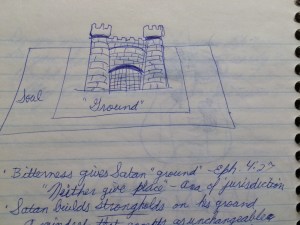 Soul
"Ground"
· Bitterness gives Satan "ground" - Eph. 4:27
"Neither give place" - Area of jurisdiction
· Satan builds strongholds on his ground
"A mindset that accepts as unchangeable